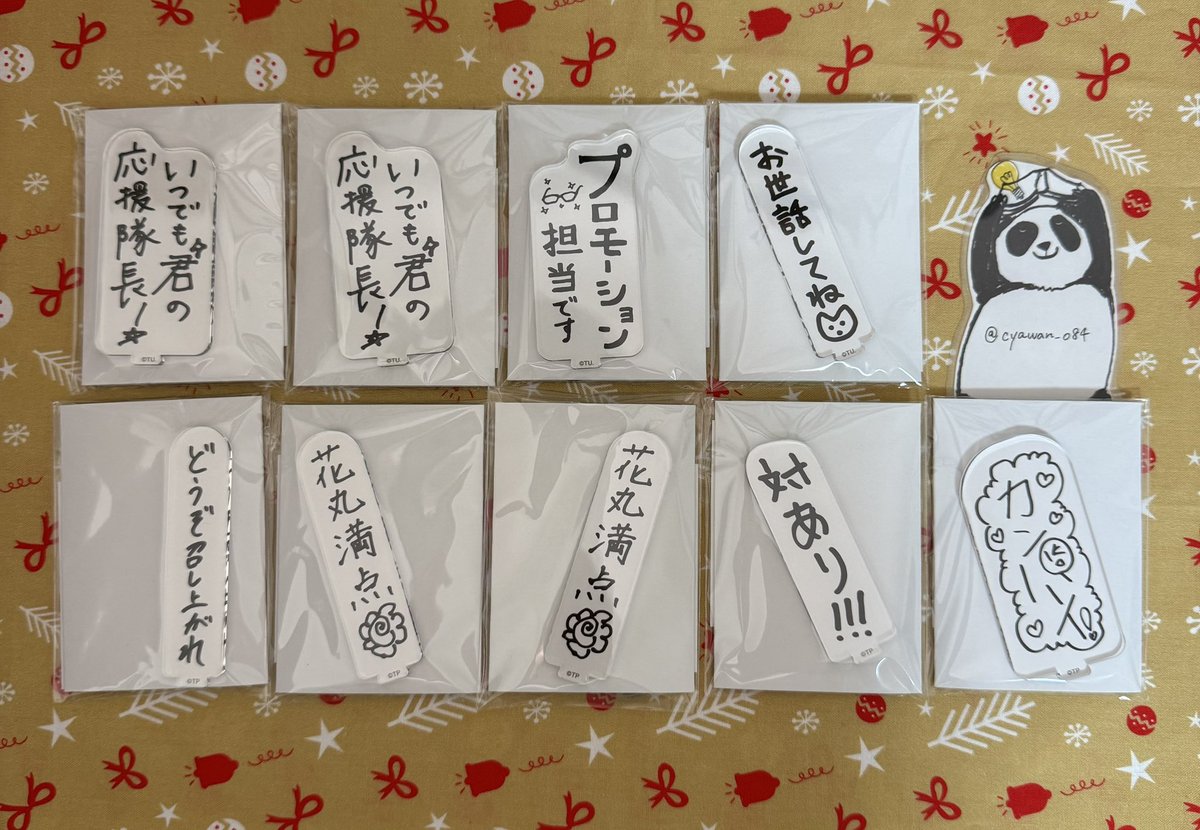 いつでも君の
応援隊長ー
©T.U.
いつでも君の
応援隊長ー
©T.U.
プロモーション
担当です
©T.U.
お世話してね
©T.U.
@cyawan_084
どうぞ召し上がれ
©TP
花丸満点
©TP
花丸満点
©TP
対あり!!!
©TP
©TP